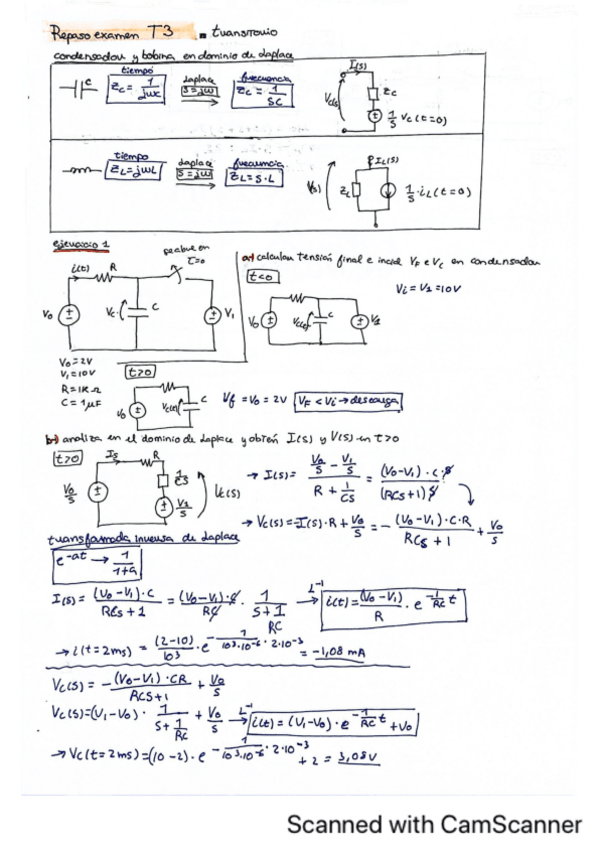 Repaso examen T3 - transitorio
condensador y bobina en dominio de Laplace
tiempo
laplace
frecuencia
I(s)
C
Zc = 1/jωC
s=jω
Zc = 1/SC
Vc(s)
Zc
1/s Vc(t=0)
tiempo
laplace
frecuencia
ZL=jωL
s=jω
ZL=S·L
IL(s)
V(s)
ZL
1/s · iL(t=0)
ejercicio 1
se abre en t=0
a) calcular tensión final e incial VF e Vc en condensador
i(t)
R
t<0
Vi = V1 = 10V
V0
Vc
C
V1
V0
Vc(t)
C
V1
V0=2V
V1=10V
R=1KΩ
C=1μF
t>0
V0
Vc(t)
C
Vf = V0 = 2V
VF < Vi → descarga
b) analiza en el dominio de Laplace y obten I(s) y V(s) en t>0
t>0
Is
R
V0/s
1/CS
V1/s
Vc(s)
→ I(s) = (V0/s - V1/s)/(R + 1/CS) = (V0-V1)·C·s/((RCs+1)s)
→ Vc(s) = -I(s)·R + V0/s = - (V0-V1)·C·R/(RCs+1) + V0/s
transformada inversa de Laplace
e^-at → 1/(1+a)
I(s) = (V0-V1)·C/(RCs+1) = (V0-V1)·C/RC · 1/(s+1/RC) L^-1→ i(t) = (V0-V1)/R · e^(-1/RC t)
→ i(t=2ms) = (2-10)/10^3 · e^(-1/(10^3·10^-6) · 2·10^-3) = -1,08 mA
Vc(s) = -(V0-V1)·CR/(RCS+1) + V0/s
Vc(s) = (V1-V0) · 1/(s+1/RC) + V0/s L^-1→ i(t) = (V1-V0)·e^(-1/RC t) + V0
→ Vc(t=2ms) = (10-2)·e^(-1/(10^3·10^-6) · 2·10^-3) + 2 = 3,08V
Scanned with CamScanner